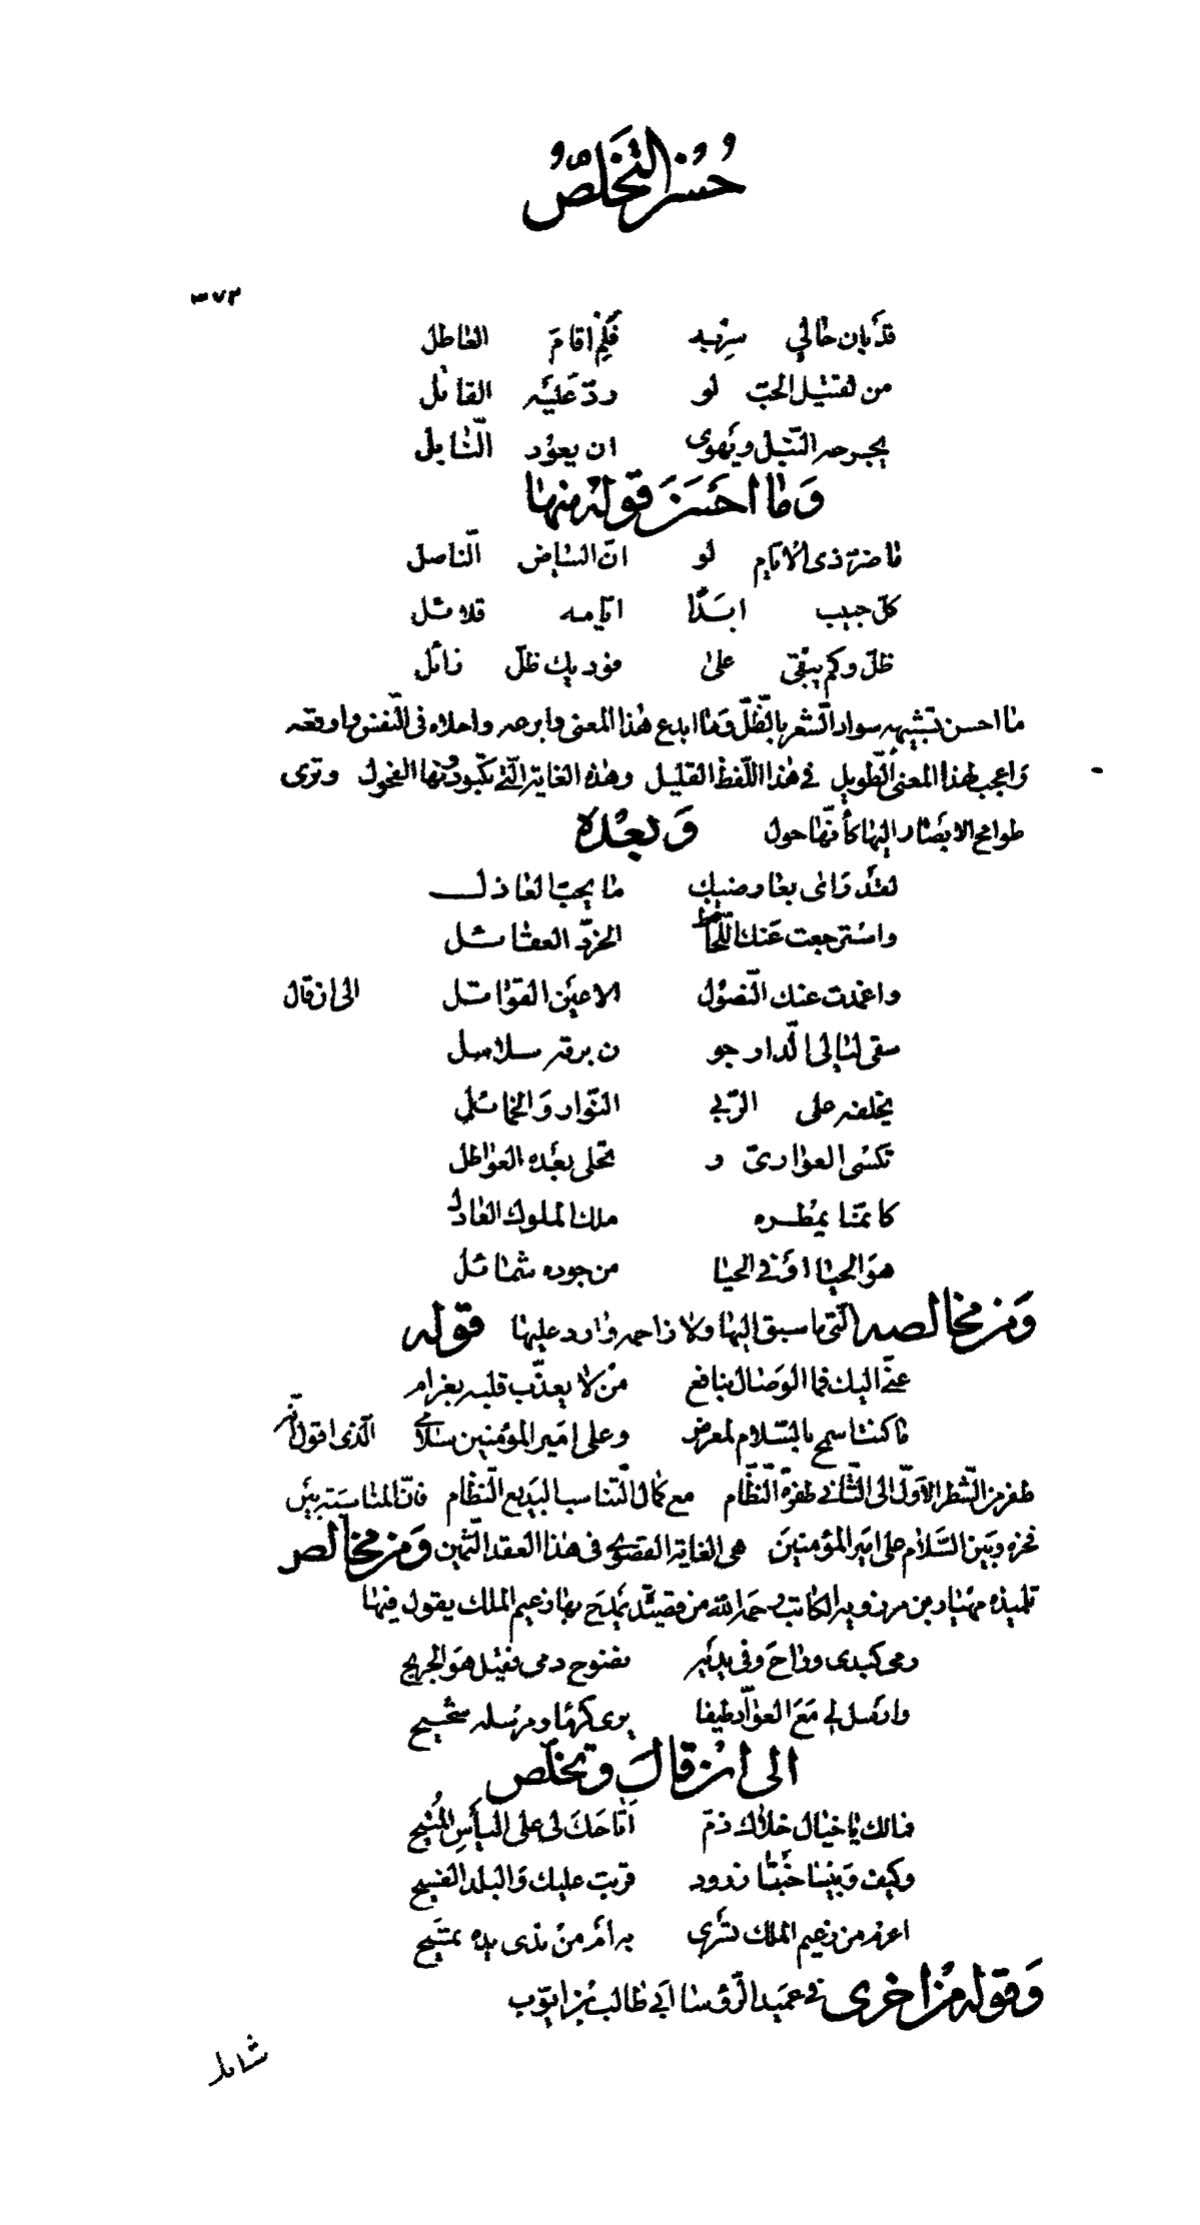 حُسنُ التخَلّصُ
٣٧٣
قد بان حالي سربه فَلِمْ اقامَ العاطل
من لقتيل الحبّ لو ردّ عَليَه القاتل
يجرحه النّبل ويَهوى ان يعوُد النّابل
وَما احَسَنَ قولهُ منها
ما ضرّ ذى الايام لو انّ البياض الناصل
كلّ حبيب ابَدًا ايّامه قلائل
ظلّ وكم يبْقى على فوديك ظلّ زائل
ما احسن تشبيهه سواد الشعر بالظّلّ وَما ابدع هذا المعنى وابرعه واحلاه فى النّفس واوقعه
وَاعجب لهذا المعنى الطّويل فى هذا اللّفظ القليل وهذه الغاية الّتى تكبّو دُونها الفحول وترى
طوامح الابصار اليها كأنّها حول وَبعْدهُ
لقد رَاى بعارضيك ما يحبّ العاذل
واسْترجعت عَنك اللّحاظ الخرّد العقائل
واغمدت عنك النّصوُل الاعين القواتل الى ان قال
سقى ليالى الدار جو ن برقه سلاسل
يخلفه على الرّبى النّوار وَالخمائل
تكسُى العوارىّ و تحلى بعْده العواطل
كانمّا يمْطره ملك الملوك العادل
هوَ الحيا اوَفى الحيا من جوده شمائل
وَمن مخالصه التى ما سبق اليها ولا زاحمه وارد عليها قوله
عنّى اليك فما الوصَال بنافع منْ لا يعذّب قلبه بغرام
ما كنت اسمح بالسّلام لمعرض وعلى امَير المؤمنين سلامى الّذى اقول انّه
طفر من الشّطر الأوّل الى الثّانى طفرة النّظّام مع كمال التّناسب البَديع النّظام فانّ المناسَبة بيَن
فخره وبَين السَّلام على امَير المؤمنينَ هى الغاية القصْوى فى هذا العقد الثّمين وَمن مخالص
تلميذه مهيار بن مرزويه الكاتب رحمَه الله من قصيدة يمَدح بها زعيم الملك يقول فيها
رمى كبدى وراحَ وفى يديَه نضوح دمى فقيل هوَ الجريح
وارسَل لى مَعَ العوّاد طيفا يرى كرمًا ومرْسله شحيح
الى ان قالَ وتخلّص
فمالك يا خيال خلاك ذمّ اَتاحَكَ لى على اليأسِ المُتيح
وكيف وَبيننا خَبتا زرود قربت عليك وَالبلد الفسيح
اعزم من زعيم الملك تسْرى به امْ منْ ندى يده تمتيَح
وَقوله منْ اخرى فى عميَد الرّؤسا ابَى طالب بن ايّوب
شائد